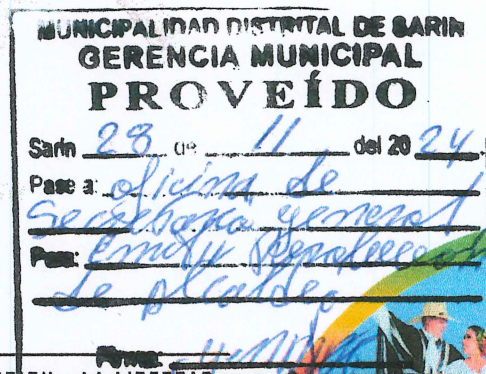 MUNICIPALIDAD DISTRITAL DE SARIN
GERENCIA MUNICIPAL
PROVEÍDO
Sarin 28 de 11 del 2024
Pase a: oficina de
Secretaria general
Para: Emitir Resolucion
de Alcaldia
Firma: